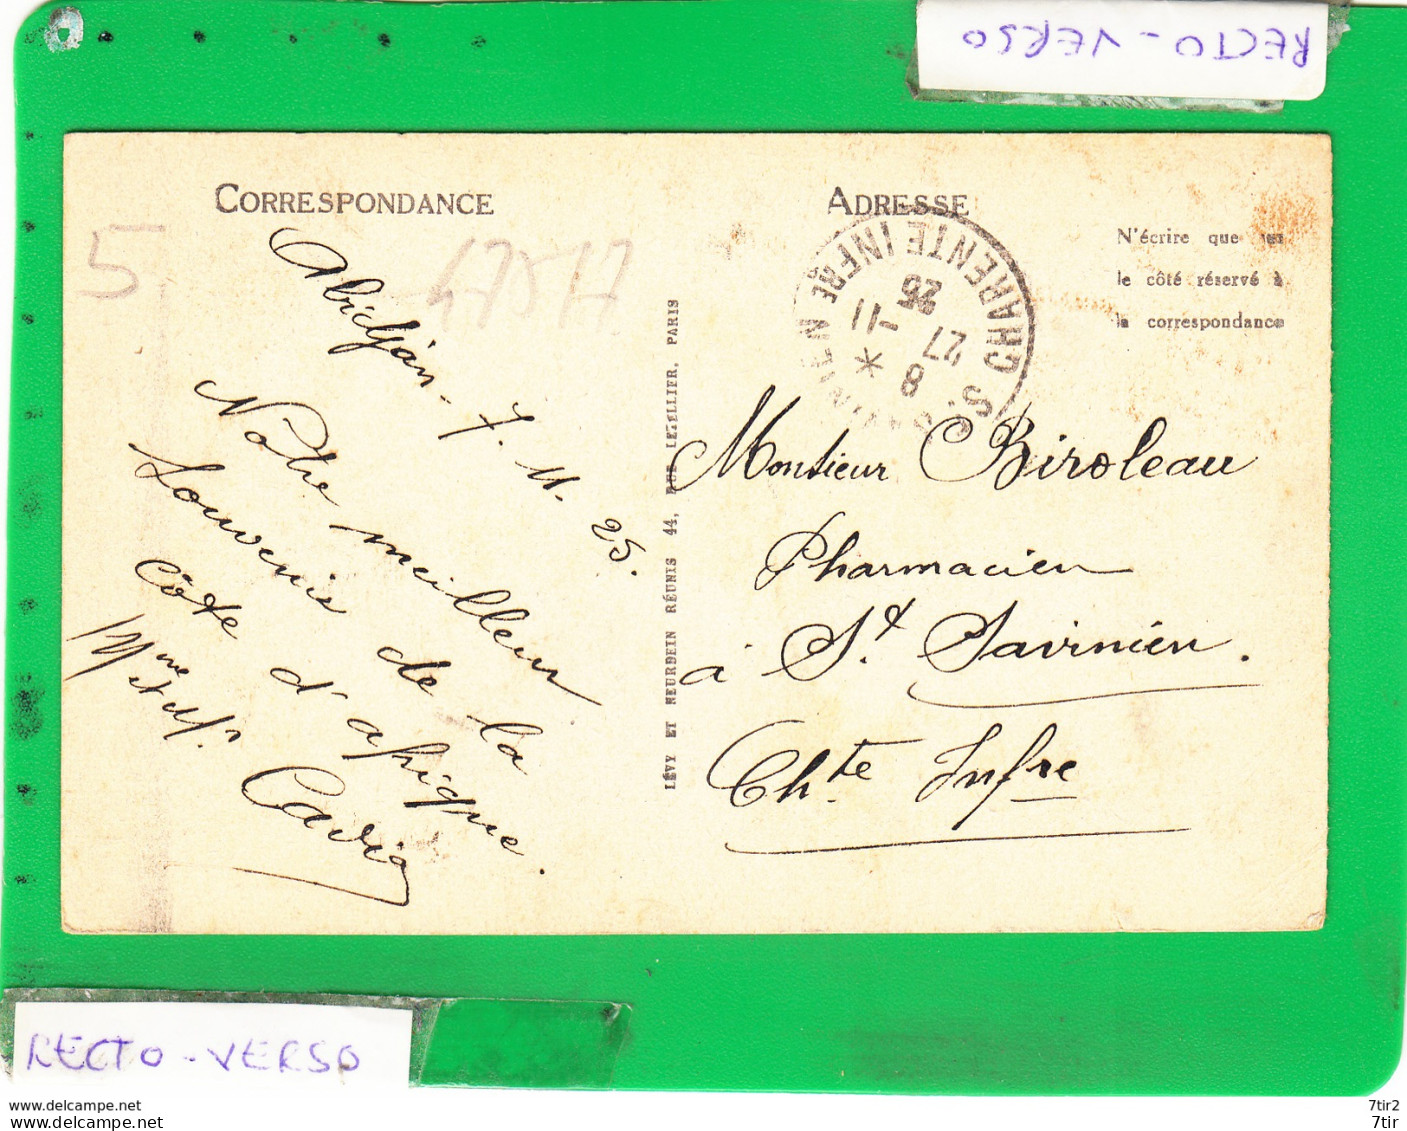 RECTO - VERSO
CORRESPONDANCE
ADRESSE
N'écrire que sur
le côté réservé à
la correspondance
5
47817
Abidjan - 7. 11. 25.
Notre meilleur
souvenir de la
côte d'afrique.
Mme et Mr. Cadio
LÉVY ET NEURDEIN RÉUNIS 44, RUE LETELLIER, PARIS
S. CHARENTE INFRE
8 *
27 - 11
25
Monsieur Biroleau
Pharmacien
à St. Savinien.
Chte Infre
RECTO - VERSO
www.delcampe.net
www.delcampe.net
7tir2
7tir